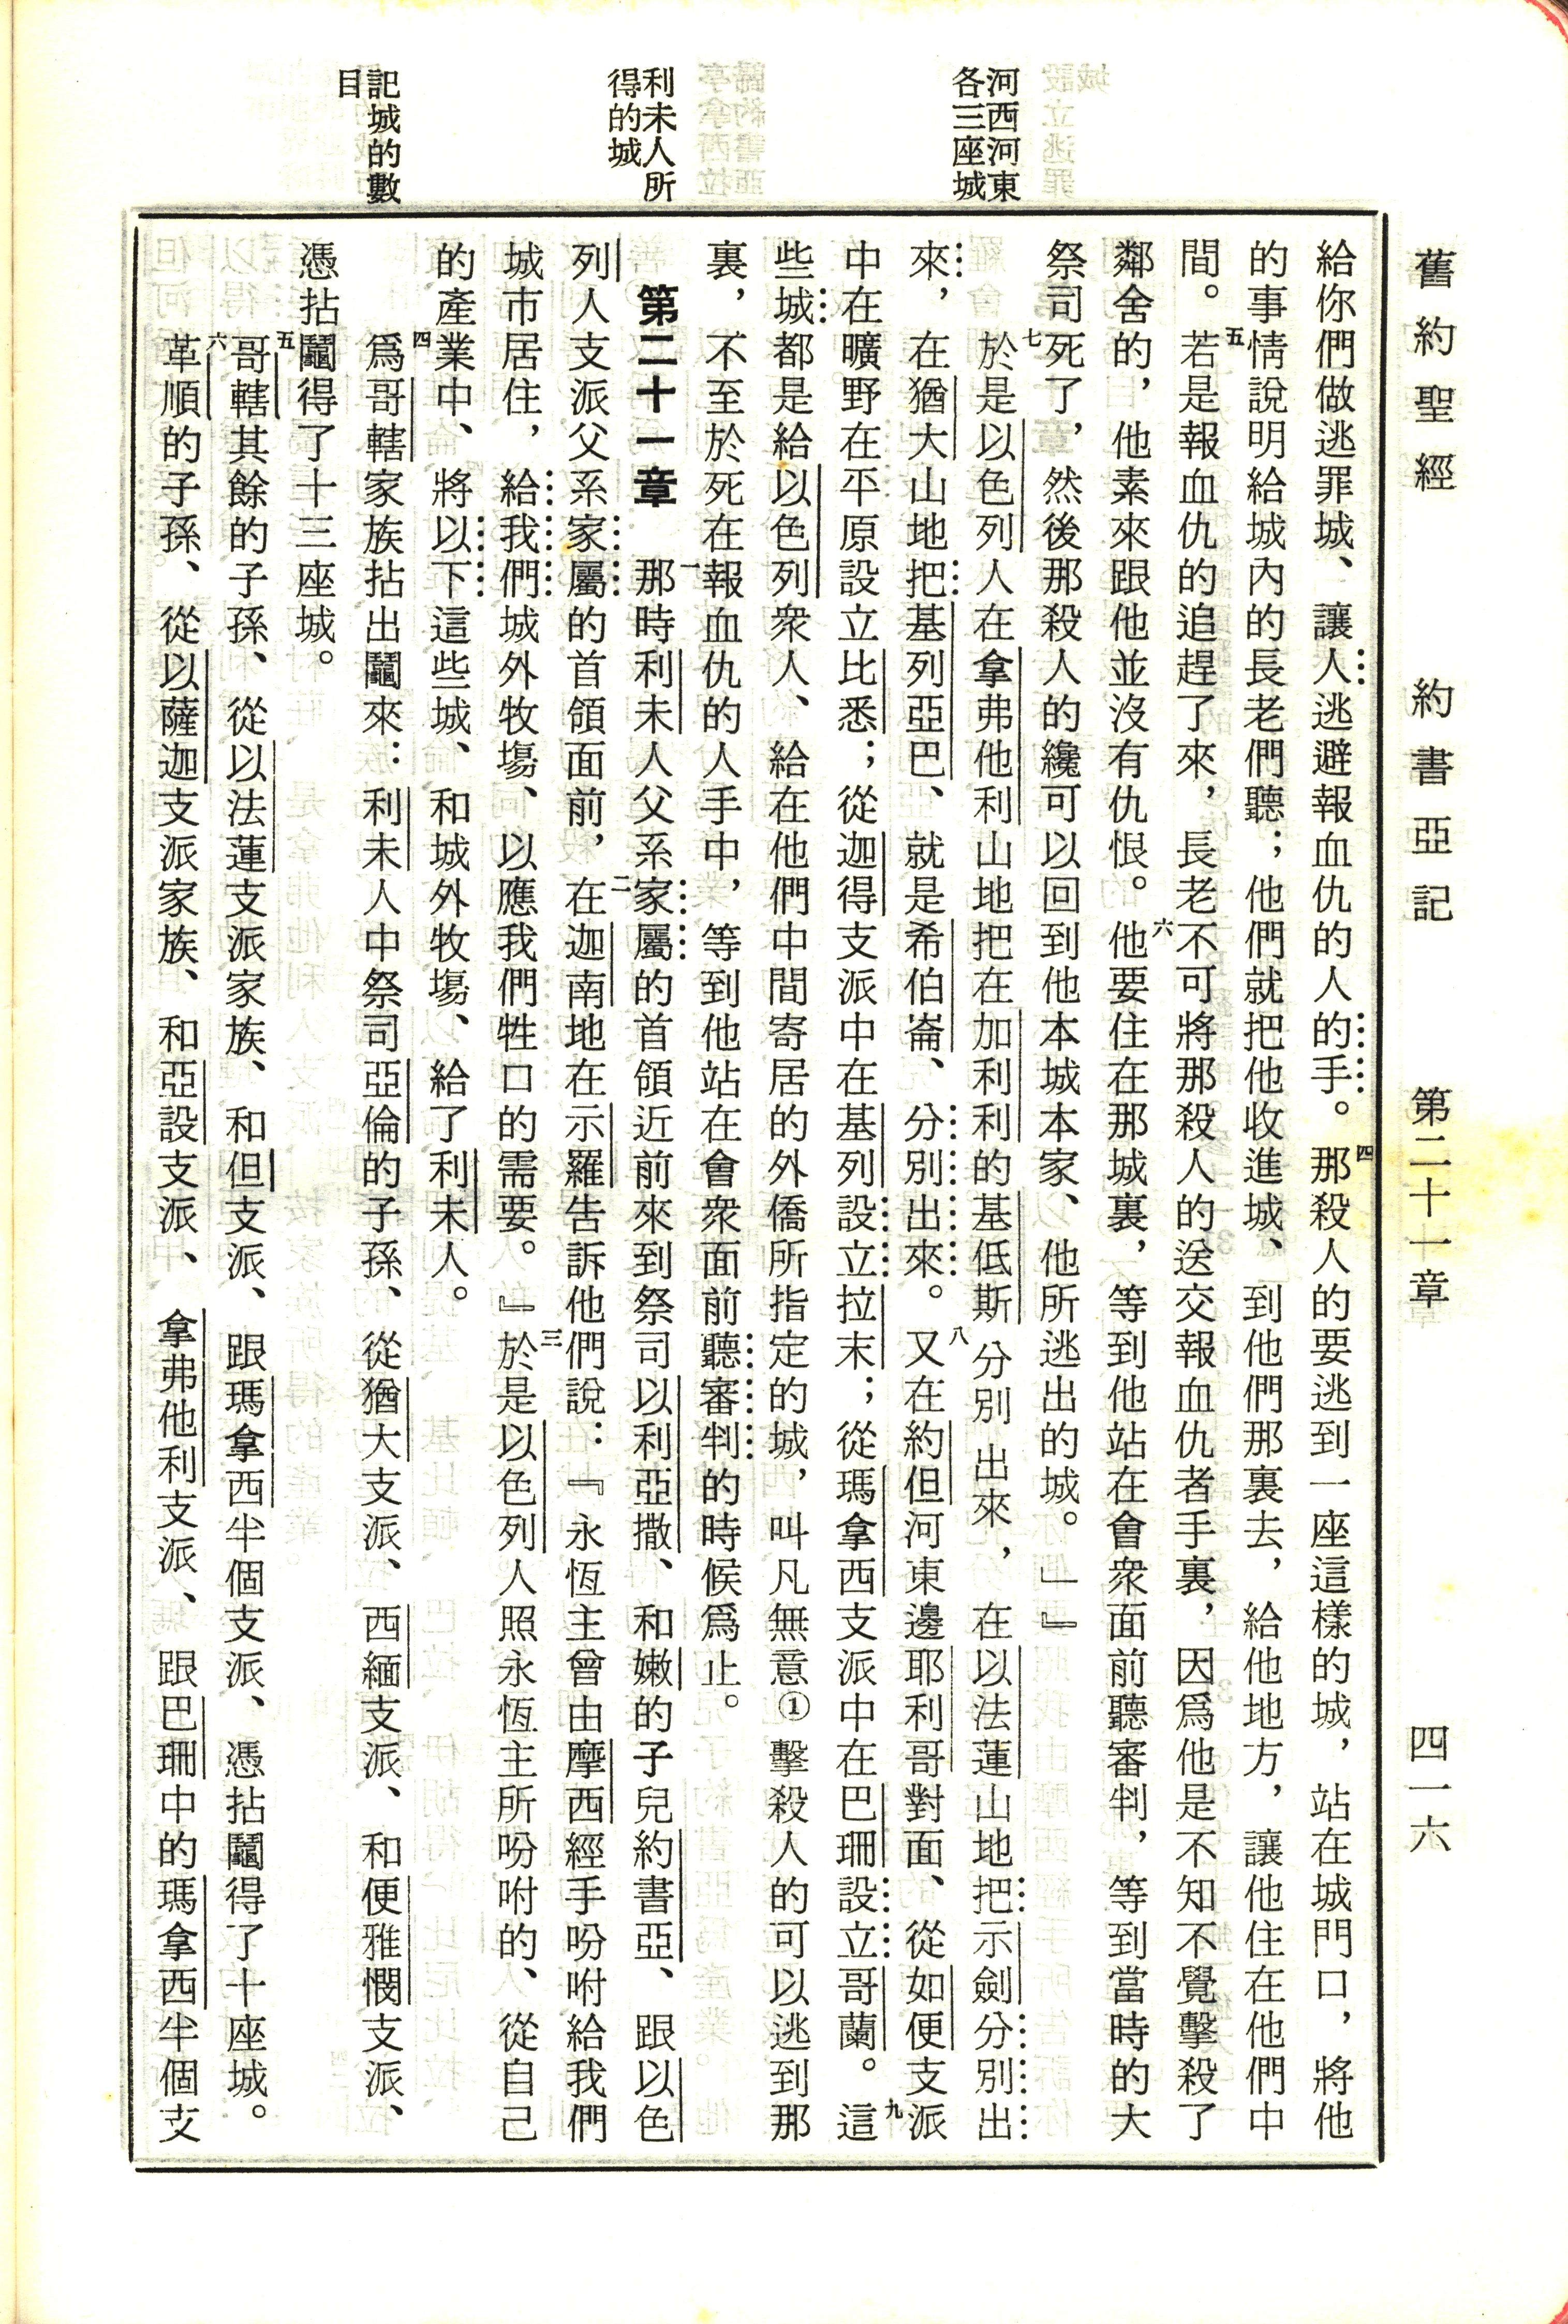 舊約聖經　約書亞記　第二十一章　四一六
河西河東
各三座城
利未人所
得的城
記城的數
目
給你們做逃罪城、讓人逃避報血仇的人的手。四那殺人的要逃到一座這樣的城，站在城門口，將他
的事情說明給城內的長老們聽；他們就把他收進城、到他們那裏去，給他地方，讓他住在他們中
間。五若是報血仇的追趕了來，長老不可將那殺人的送交報血仇者手裏，因爲他是不知不覺擊殺了
鄰舍的，他素來跟他並沒有仇恨。六他要住在那城裏，等到他站在會衆面前聽審判，等到當時的大
祭司死了，然後那殺人的纔可以回到他本城本家、他所逃出的城。」』
七於是以色列人在拿弗他利山地把在加利利的基低斯分別出來，在以法蓮山地把示劍分別出
來，在猶大山地把基列亞巴、就是希伯崙、分別出來。八又在約但河東邊耶利哥對面、從如便支派
中在曠野在平原設立比悉；從迦得支派中在基列設立拉末；從瑪拿西支派中在巴珊設立哥蘭。九這
些城都是給以色列衆人、給在他們中間寄居的外僑所指定的城，叫凡無意①擊殺人的可以逃到那
裏，不至於死在報血仇的人手中，等到他站在會衆面前聽審判的時候爲止。
第二十一章　一那時利未人父系家屬的首領近前來到祭司以利亞撒、和嫩的子兒約書亞、跟以色
列人支派父系家屬的首領面前，二在迦南地在示羅告訴他們說：『永恆主曾由摩西經手吩咐給我們
城市居住，給我們城外牧場、以應我們牲口的需要。』三於是以色列人照永恆主所吩咐的、從自己
的產業中、將以下這些城、和城外牧場、給了利未人。
四爲哥轄家族拈出鬮來：利未人中祭司亞倫的子孫、從猶大支派、西緬支派、和便雅憫支派、
憑拈鬮得了十三座城。
五哥轄其餘的子孫、從以法蓮支派家族、和但支派、跟瑪拿西半個支派、憑拈鬮得了十座城。
六革順的子孫、從以薩迦支派家族、和亞設支派、拿弗他利支派、跟巴珊中的瑪拿西半個支